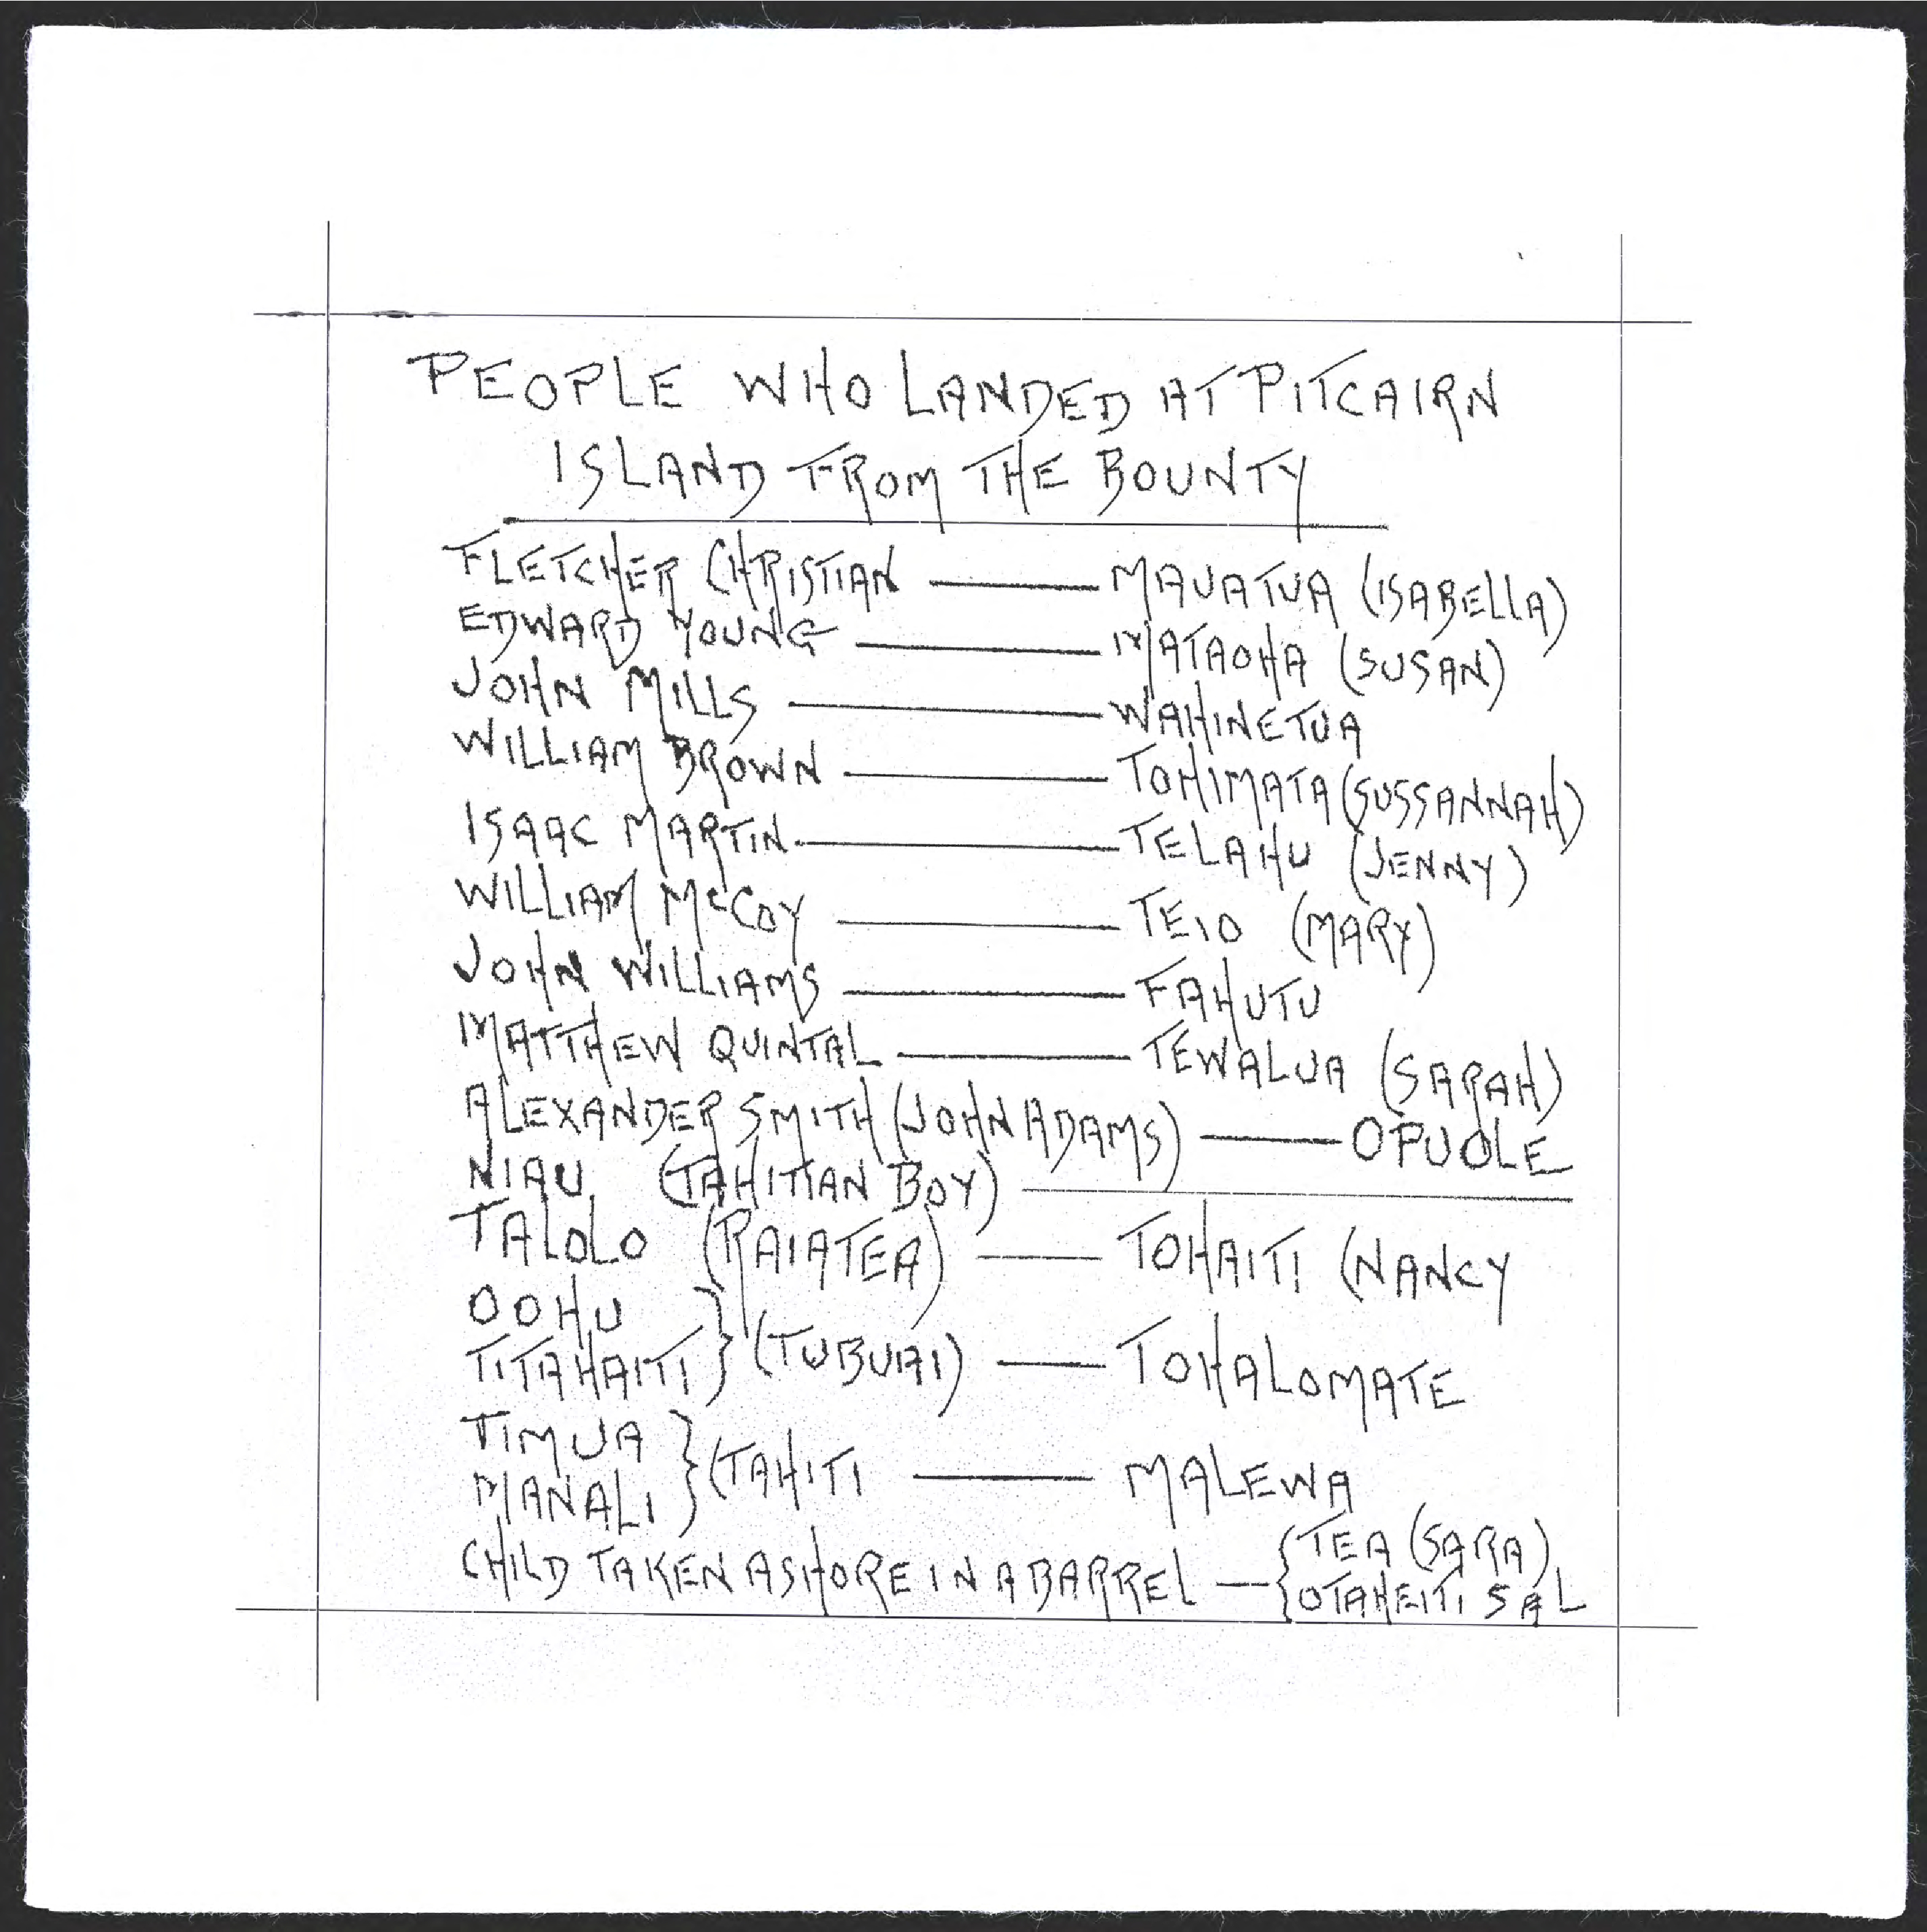 PEOPLE WHO LANDED AT PITCAIRN
ISLAND FROM THE BOUNTY
FLETCHER CHRISTIAN — MAUATUA (ISABELLA)
EDWARD YOUNG — MATAOHA (SUSAN)
JOHN MILLS — WAHINETUA
WILLIAM BROWN — TOHIMATA (SUSSANNAH)
ISAAC MARTIN — TELAHU (JENNY)
WILLIAM McCOY — TEIO (MARY)
JOHN WILLIAMS — FAHUTU
MATTHEW QUINTAL — TEWALUA (SARAH)
ALEXANDER SMITH (JOHN ADAMS) — OPUOLE
NIAU (TAHITIAN BOY) —
TALOLO (RAIATEA) — TOHAITI (NANCY
OOHU
TITAHAITI } (TUBUAI) — TOHALOMATE
TIMUA
MANALI } (TAHITI — MALEWA
CHILD TAKEN ASHORE IN A BARREL — { TEA (SARA)
OTAHEITI SAL